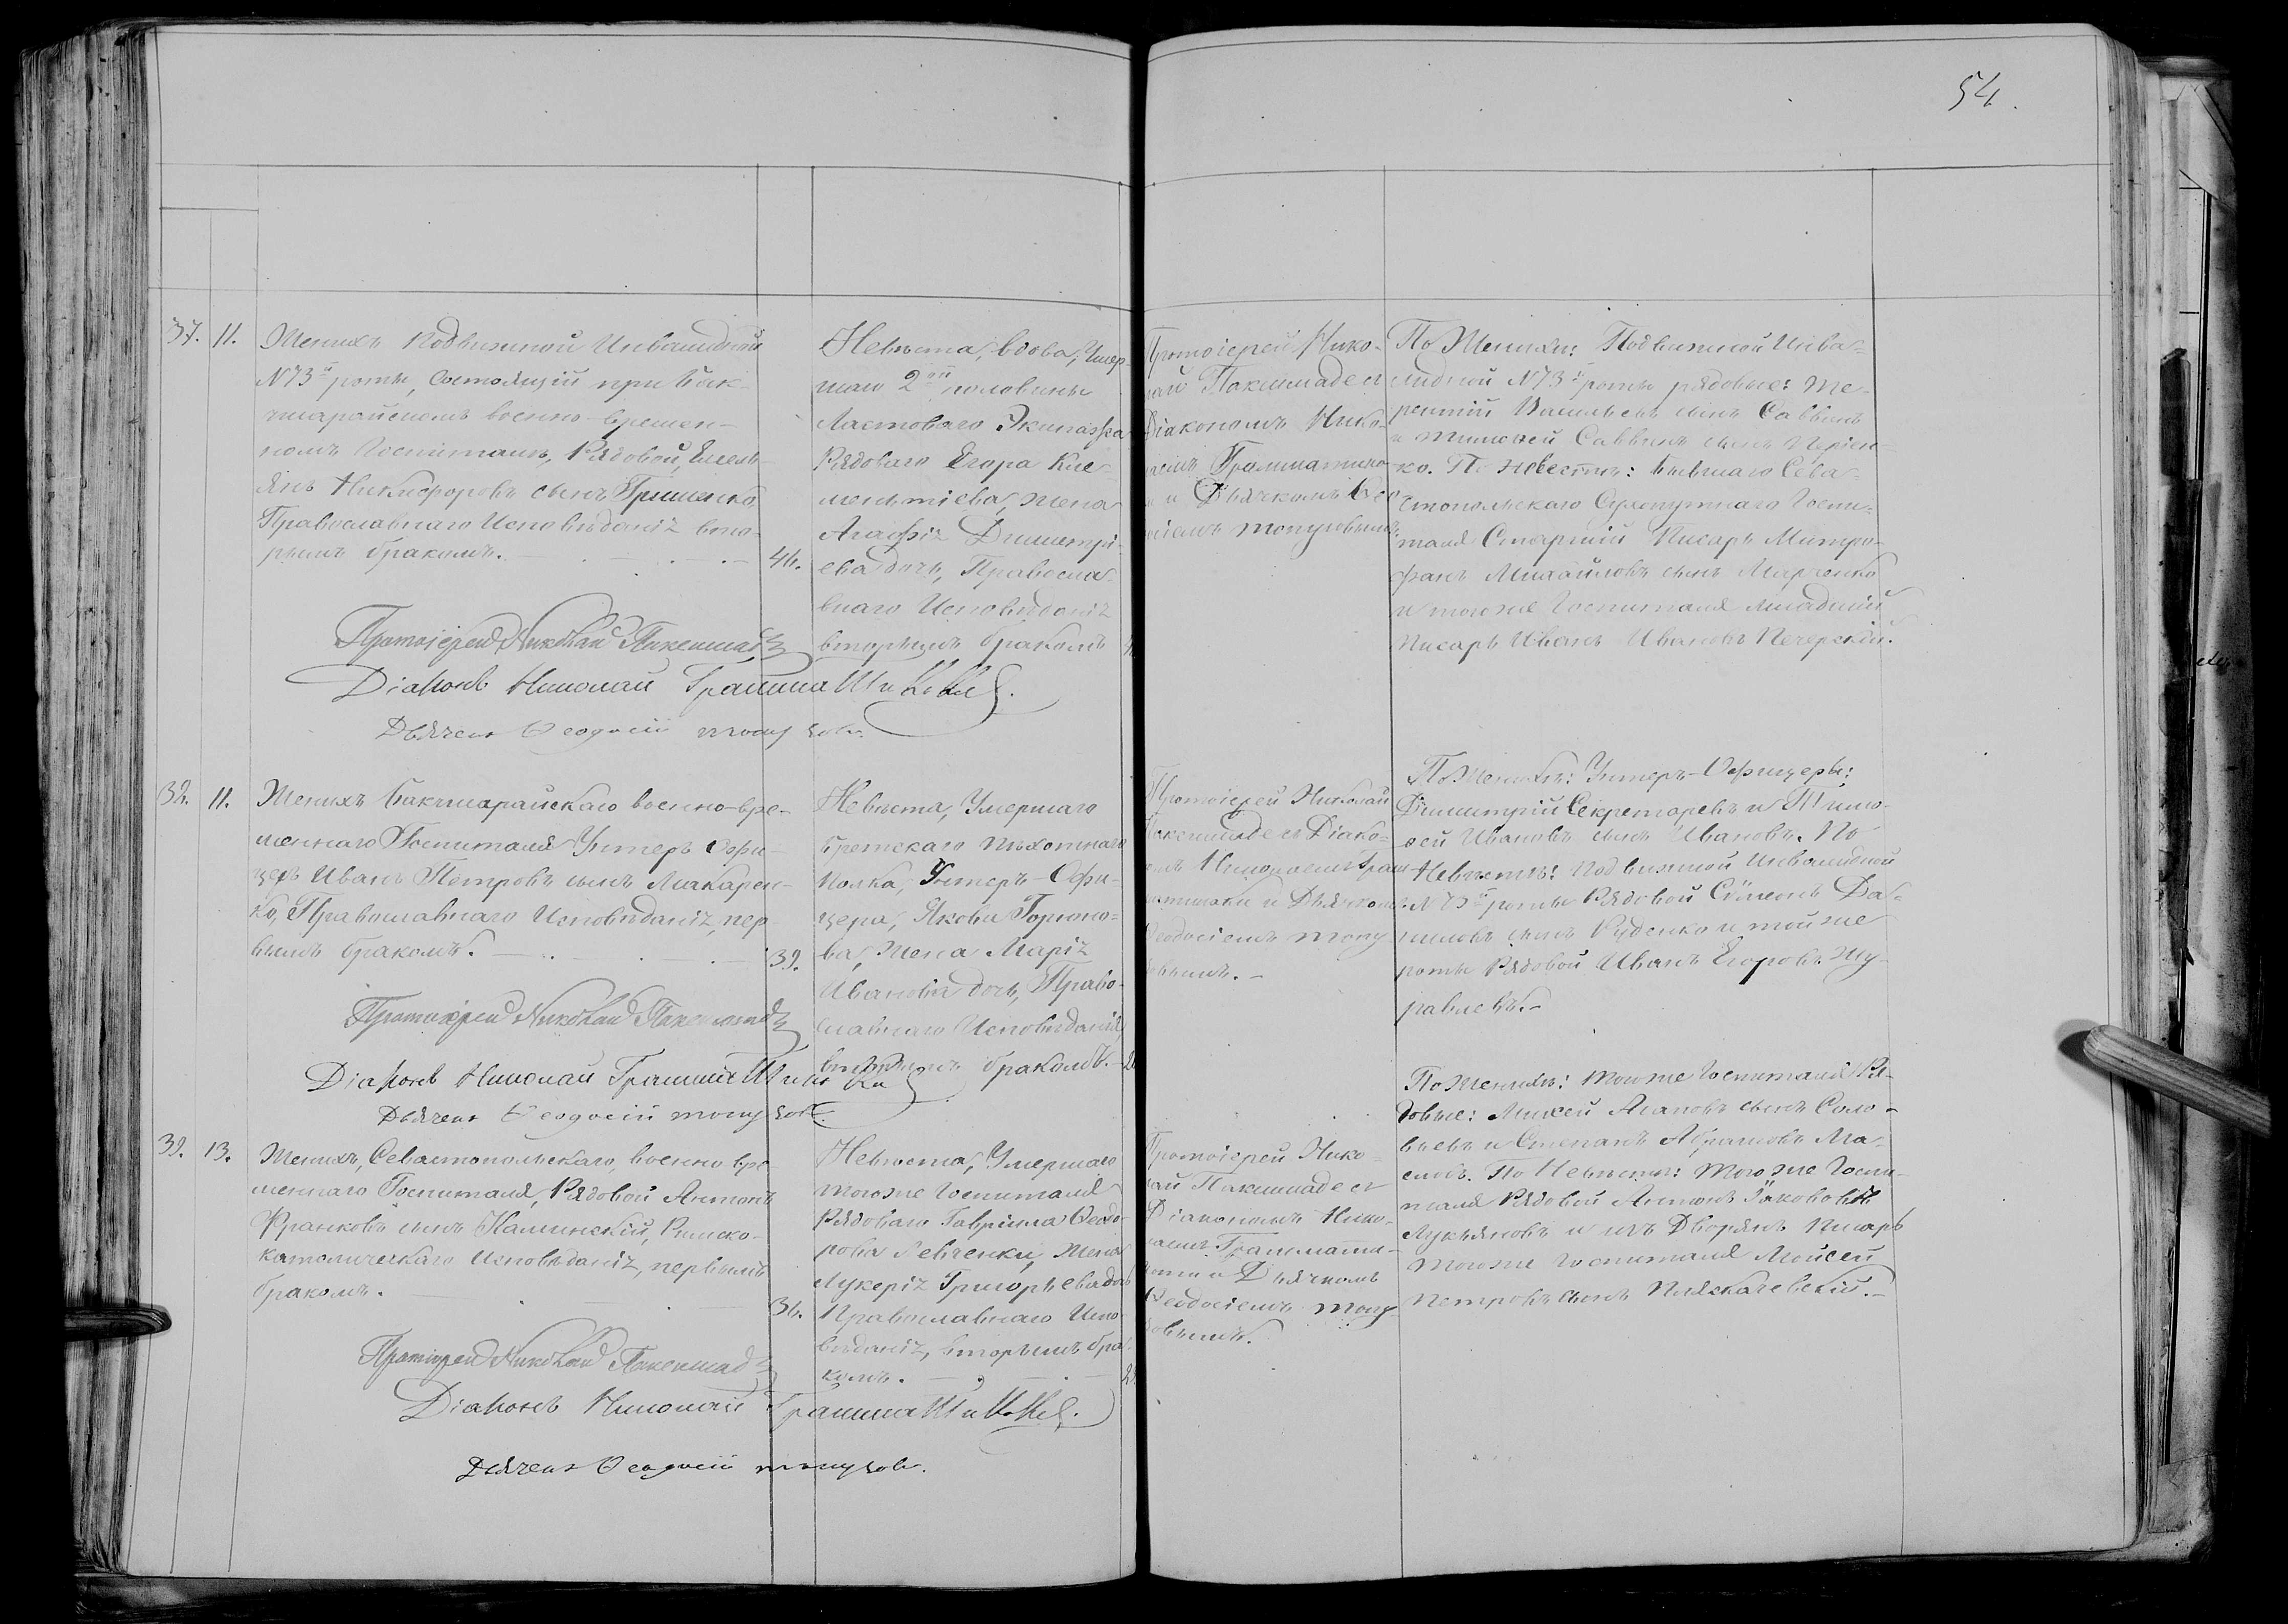 54.
37. 11. Женихъ Подвижной Инвалидной
№73й роты, состоящій при Бак-
чисарайскомъ военно-времен-
номъ Госпиталѣ, Рядовой, Емель-
янъ Никифоровъ сынъ Гриценко,
Православнаго Исповѣданія вто-
рымъ бракомъ. 46.
Протоіерей Николай Паксимаде
Діаконъ Николай Грамматиковъ.
Дьячекъ Ѳеодосій Топузовъ.
Невѣста, вдова, Умер
шаго 2ой половины
Ластоваго Экипажа
Рядоваго Егора Кле-
ментіева, жена
Агафія Димитрі-
ева дочь, Правосла-
внаго Исповѣданія
вторымъ бракомъ
Протоіерей Нико-
лай Паксимаде съ
Діакономъ Нико-
лаемъ Грамматико-
и Дьячкомъ Ѳео
досіемъ Топузовымъ.
По Женихѣ: Подвижной Инва-
лидной №73й роты рядовые: Те-
рентій Васильевъ сынъ Саввинъ
и Тимофей Саввинъ сынъ
ко. По невестѣ: Бывшаго Сева-
стопольскаго Сухопутнаго Госпи-
таля Старшій Писарь Митро-
фанъ Михайловъ сынъ Марченко
и тогоже Госпиталя младшій
писарь Иванъ Ивановъ Печерскій.
38. 11. Женихъ Бакчисарайскаго военно-вре-
меннаго Госпиталя Унтеръ Офи-
церъ Иванъ Петровъ сынъ Макарен-
ко, Православнаго Исповѣданія, пер-
вымъ бракомъ. 39.
Протоіерей Николай Паксимаде
Діаконъ Николай Грамматиковъ
Дьячекъ Ѳеодосій Топузовъ.
Невѣста, Умершаго
Брестскаго пѣхотнаго
Полка, Унтеръ-Офи-
цера, Якова Горюно-
ва, жена Марія
Иванова дочь, Право-
славнаго Исповѣданія,
вторымъ бракомъ.
Протоіерей Николай
Паксимаде съ Діако-
номъ Николаемъ Грам
матикови и Дьячкомъ
Ѳеодосіемъ Топу-
зовымъ.
По Женихѣ: Унтеръ-Офицеры:
Димитрій Секретаревъ и Тимо-
фей Ивановъ сынъ Ивановъ. По
Невѣстѣ: Подвижной Инвалидной
№73й роты Рядовой Сѵмеонъ Да-
ниловъ сынъ Руденко и тойже
роты Рядовой Иванъ Егоровъ Жу-
равлевъ.
39. 13. Женихъ, Севастопольскаго, военно вре-
меннаго Госпиталя, Рядовой Антонъ
Франковъ сынъ Каминскій, Римско-
католическаго Исповѣданія, первымъ
бракомъ. 36.
Протоіерей Николай Паксимаде
Діаконъ Николай Грамматиковъ.
Дьячекъ Ѳеодосій Топузовъ.
Невѣста, Умершаго
тогоже Госпиталя
Рядоваго Гаврила Ѳеодо-
рова Левченки, жена
Лукерія Григорьева дочь
Православнаго Испо-
вѣданія, вторымъ бра-
комъ.
Протоіерей Нико-
лай Паксимаде съ
Діакономъ Нико-
лаемъ Граммати-
и Дьячкомъ
Ѳеодосіемъ Топу-
зовымъ.
По Женихѣ: тогоже Госпиталя Ря-
довые: Михей Агаповъ сынъ Соло-
вьевъ и Степанъ Абрамовъ Ма-
словъ. По Невѣстѣ: тогоже Госпи-
таля Рядовой Антонъ Яковлевъ
Лукьяновъ и изъ Дворянъ писарь
тогоже Госпиталя Моисей
Петровъ сынъ